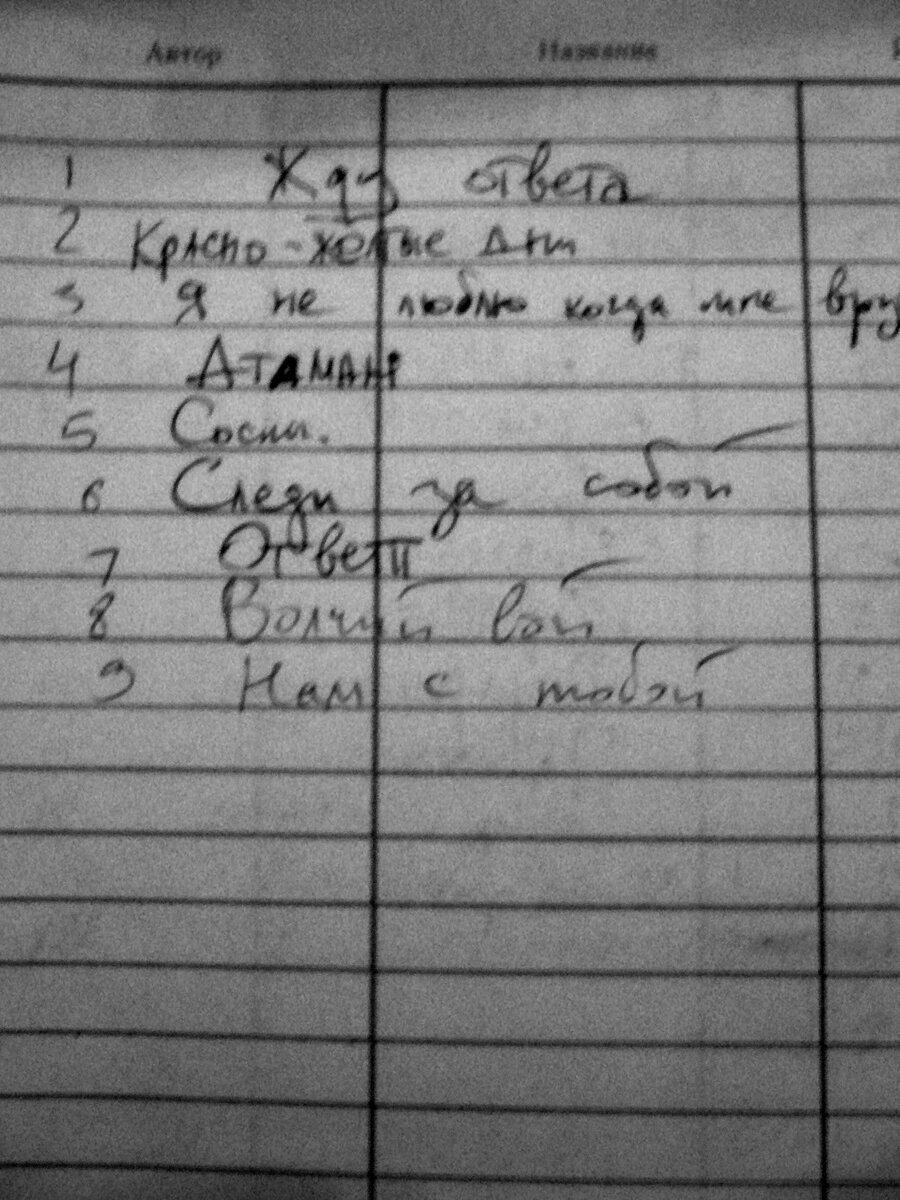 Автор Название
1 Жду ответа
2 Красно-жёлтые дни
3 Я не люблю когда мне вру
4 Атаман
5 Сосны.
6 Следи за собой
7 Ответ
8 Волчий вой
9 Нам с тобой